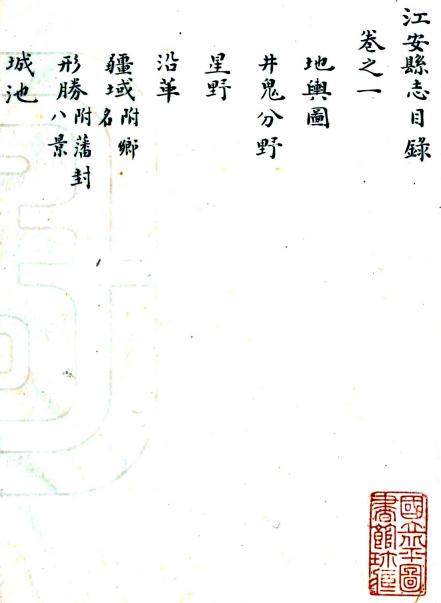 江安縣志目錄
卷之一
地輿圖
井鬼分野
星野
沿革
疆域附鄉名
形勝附藩封八景
城池
國立北平圖書館珍藏